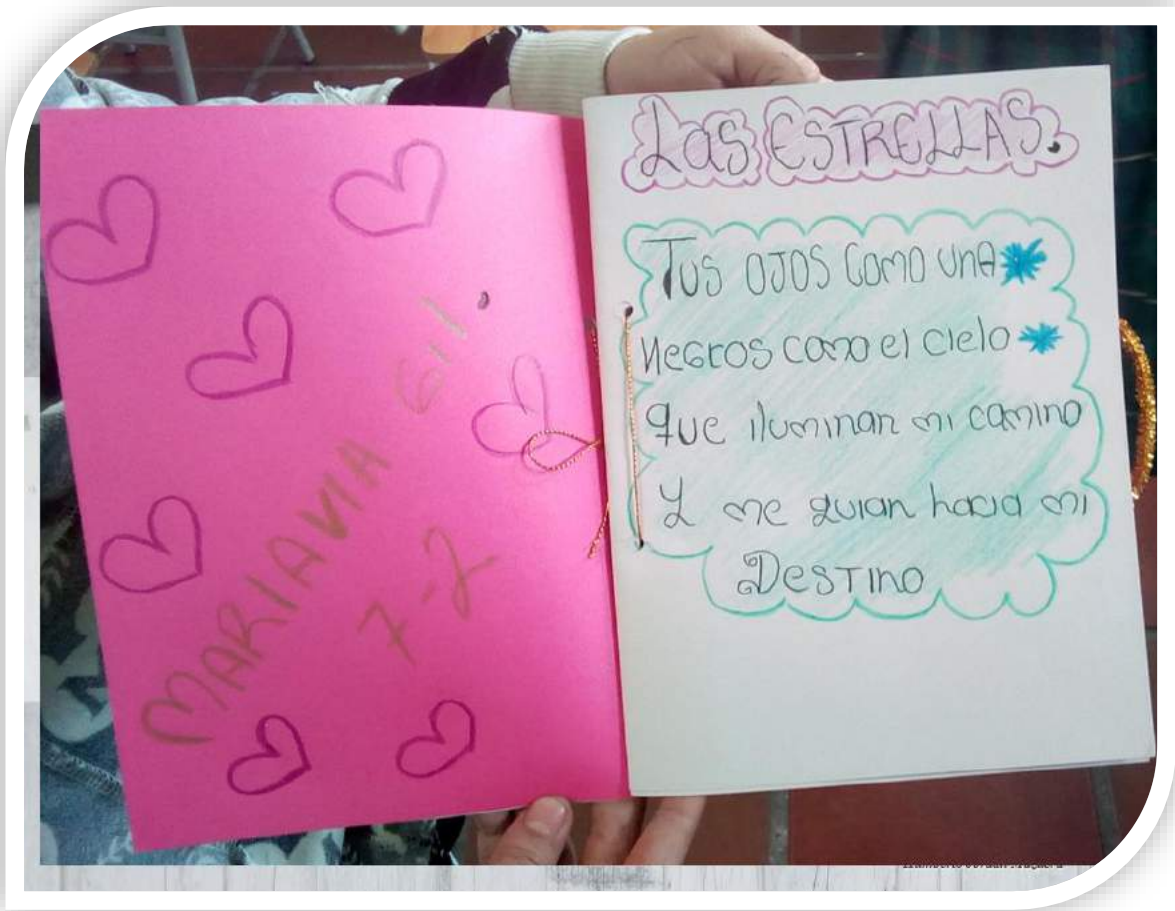 MARIAVIA Gil.
7-2
Las ESTRELLAS.
Tus OJOS Como una
Negros como el cielo
que iluminan mi camino
Y me guian hacia mi
Destino